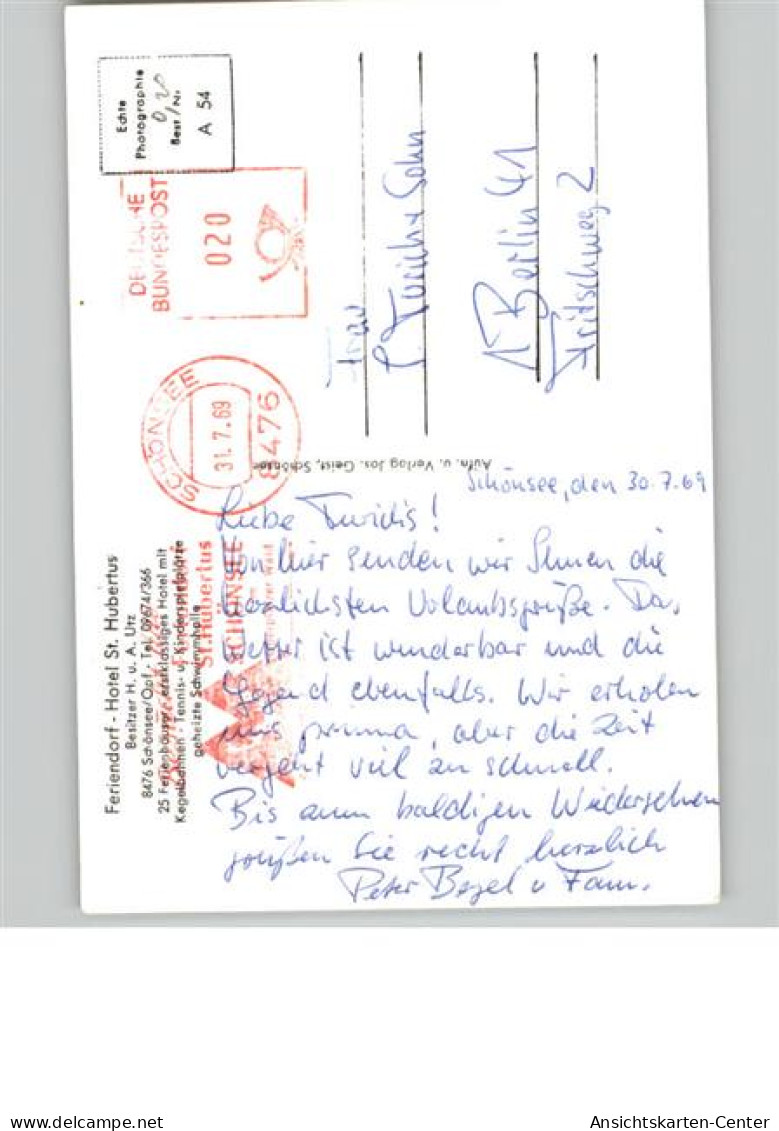 Echte
Photographie
0,20
Best/Nr.
A 54
DEUTSCHE
BUNDESPOST
020
SCHÖNSEE
31.7.69
8476
St. Hubertus
SCHÖNSEE
Feriendorf - Hotel St. Hubertus
Besitzer H. u. A. Utz
8476 Schönsee/Opf. - Tel. 09674/366
25 Ferienhäuser, erstklassiges Hotel mit
Kegelbahnen - Tennis- u. Kinderspielplätze
geheizte Schwimmhalle
Aufn. u. Verlag Jos. Geist, Schönsee
Frau
& Sohn
1 Berlin 41
Fritschweg 2
Schönsee, den 30.7.69
Liebe
Von hier senden wir Ihnen die
herzlichsten Urlaubsgrüße. Das
Wetter ist wunderbar und die
Gegend ebenfalls. Wir erholen
uns prima, aber die Zeit
vergeht viel zu schnell.
Bis zum baldigen Wiedersehen
grüßen Sie recht herzlich
Peter u. Fam.
oldthing.de
Ansichtskarten-Center